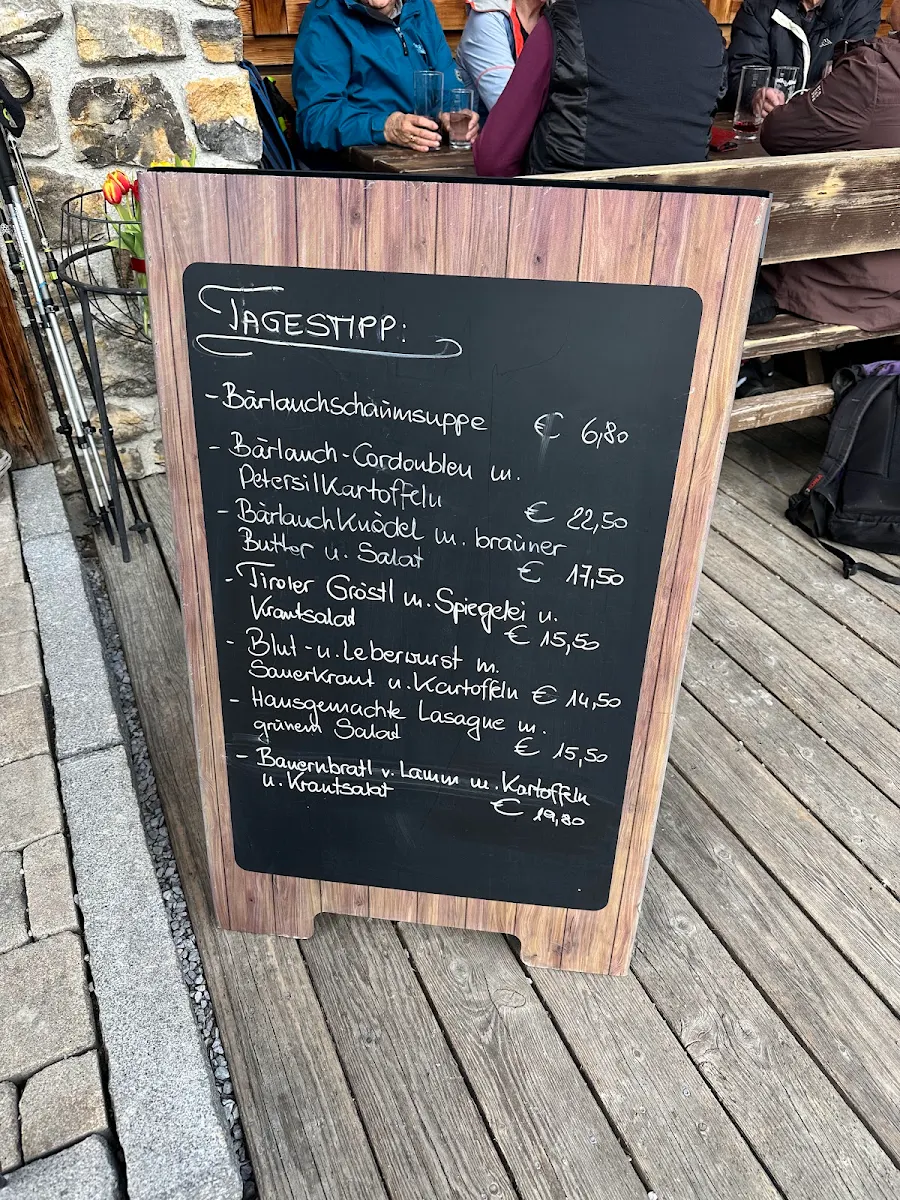 TAGESTIPP:
- Bärlauchschaumsuppe € 6,80
- Bärlauch-Cordonbleu m.
Petersilkartoffeln
€ 22,50
- Bärlauchknödel m. brauner
Butter u. Salat
€ 17,50
- Tiroler Gröstl m. Spiegelei u.
Krautsalat
€ 15,50
- Blut- u. Leberwurst m.
Sauerkraut u. Kartoffeln € 14,50
- Hausgemachte Lasagne m.
grünem Salad
€ 15,50
- Bauernbratl v. Lamm m. Kartoffeln
u. Krautsalat
€ 19,80